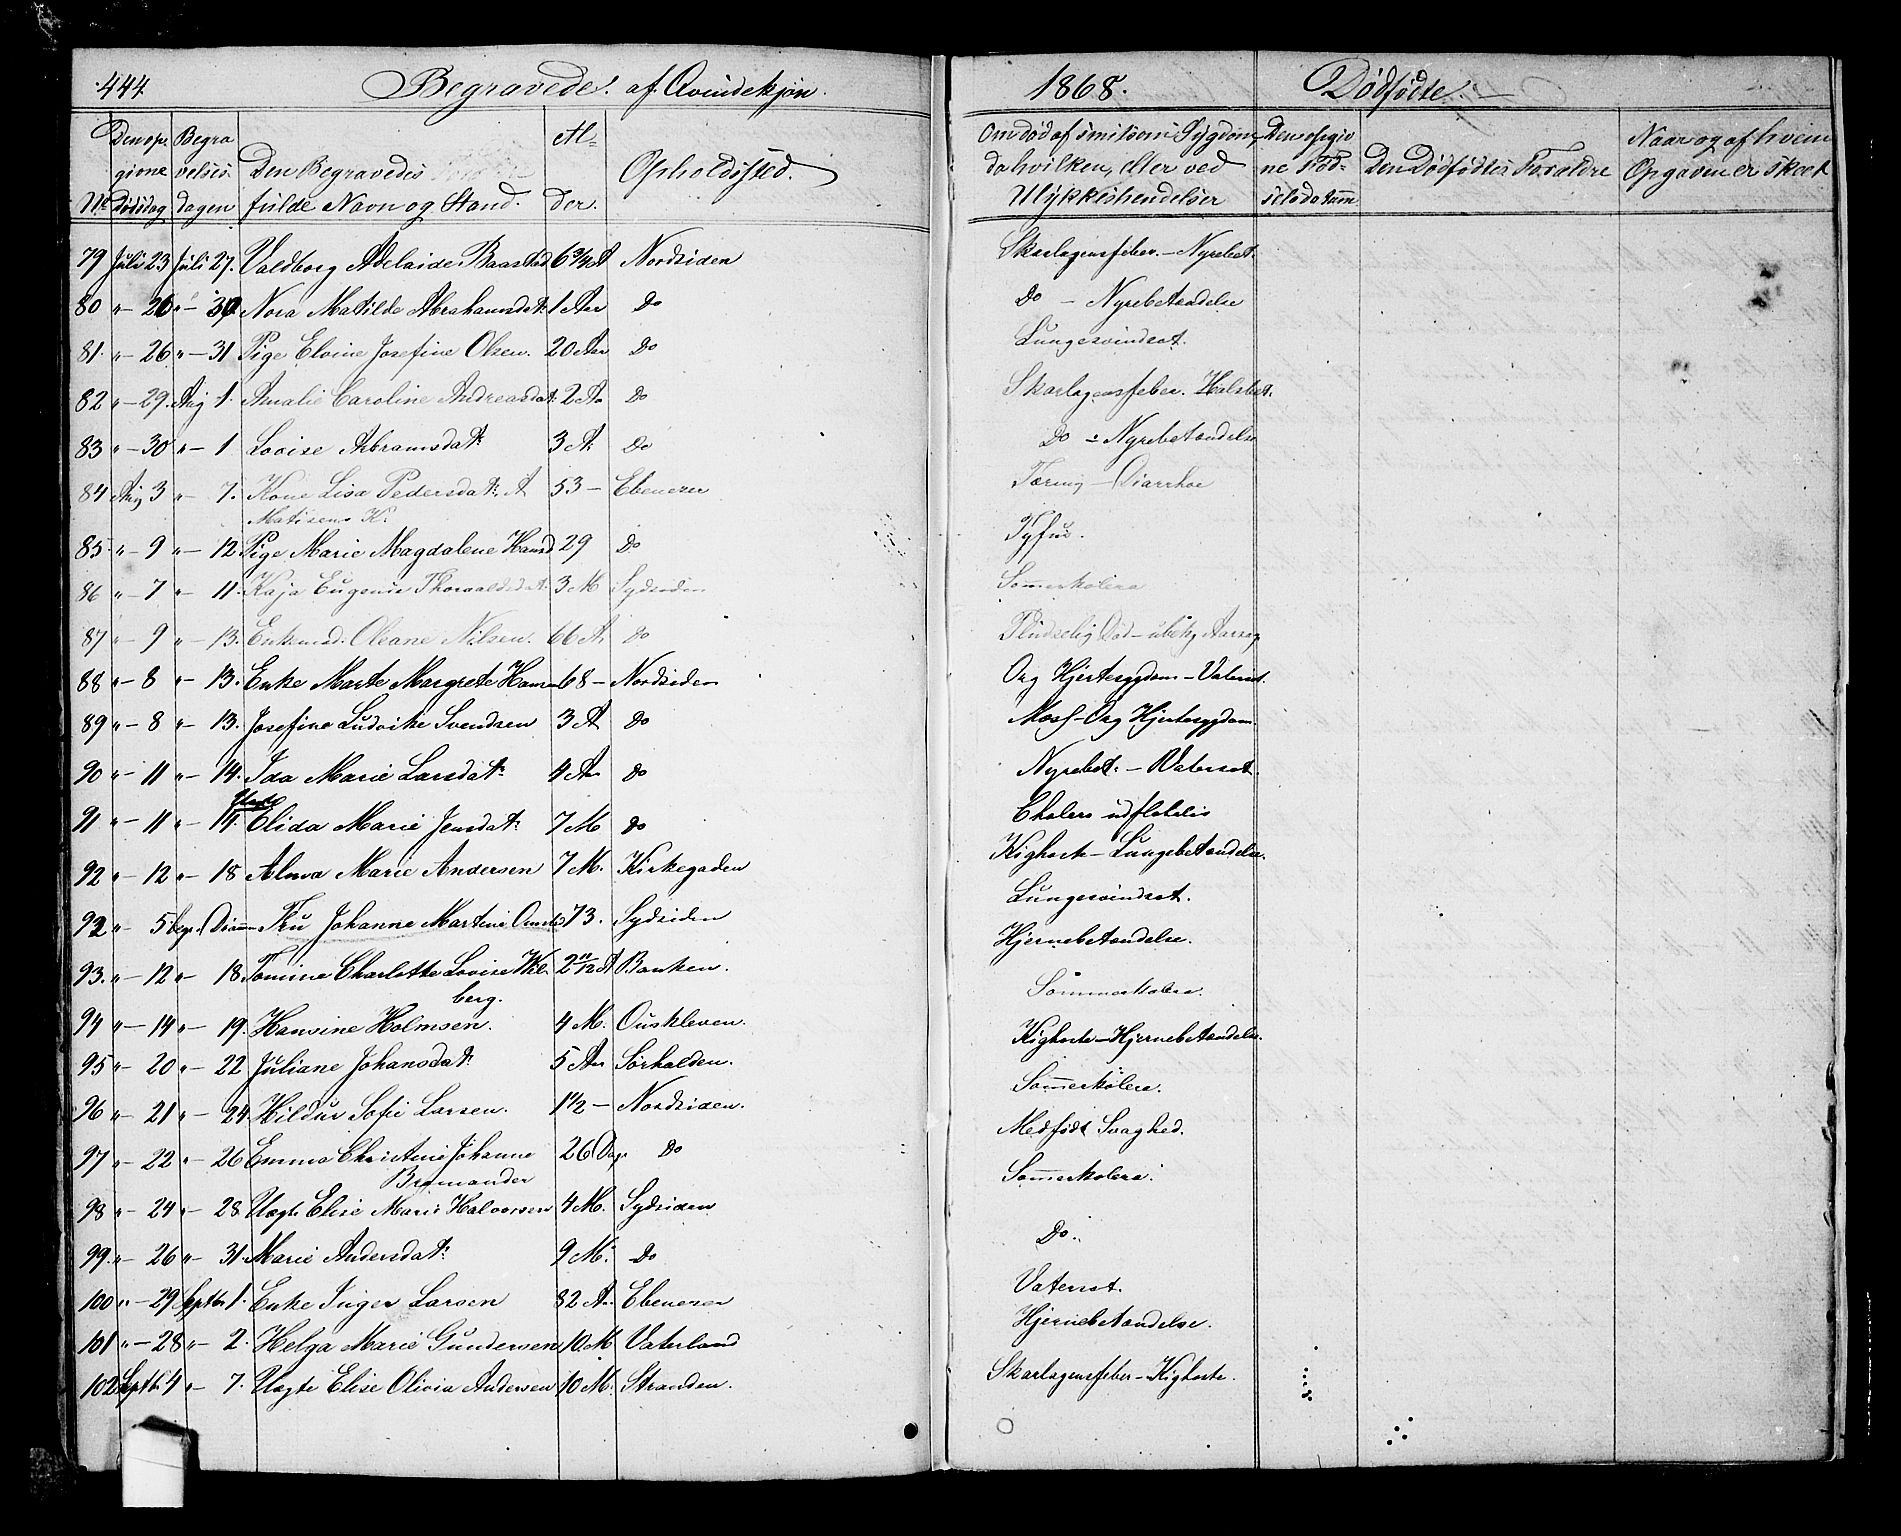 444 Begravede af Qvindekjøn. 1868. Dødfødte.
No Den opgivne dødsdag Begravelsesdagen Den Begravedes fulde Navn og Stand. Alder. Opholdssted. Om død af smitsom Sygdom, da hvilken, eller ved Ulykkeshendelser Den opgivne Fødselsdatum Den Dødfødtes Forældre Naar og af hvem Opgaven er skeet
79 Juli 23 Juli 27. Valdborg Adelaide Baastad 6 3/4 A Nordsiden Skarlagensfeber. - Nyrebet.
80 " - 26 " - 30 Nora Matilde Abrahamsdat: 1 Aar Do Do - Nyrebetændelse
81. " - 26 " - 31 Pige Elvine Josefine Olsen. 20 Aar Do Lungesvindsot.
82 " - 29. Aug 1. Amalie Caroline Andreasdat: 2 Aa Do Skarlagensfeber. Halsbet.
83 " - 30 " - 1 Lovise Abramsdat: 3 A: Do Do - Nyrebetændelse
84 Aug 3 " - 7. Kone Lisa Pedersdat: A 53 - Ebenezer Tæring - Diarrhoe
Matisens K:
85. " - 9 " - 12. Pige Marie Magdalene Hansd 29 Do Tyfus.
86 " - 7 " - 11. Kaja Eugenie Thorvaldsdat: 3 M Sydsiden Sommerkolera
87 " - 9 " - 13. Enkemad. Oleane Nilsen. 66 A. Do Pludselig Død - ubek. Aarsag
88 " - 8 " - 13. Enke Marte Margrete Hansen 68 - Nordsiden Org Hjertesygdom - Vatersot.
89 " - 8 " - 13. Josefine Ludvike Svendsen 3 A Do Mæsl - Org Hjertesygdom
90 " - 11 " - 14. Ida Marie Larsdat: 4 Aa Do Nyrebet: - Vatersot.
91 " - 11 " - 14. Elida Marie Jensdat: 7 M Do Cholera
92 " - 12 " - 18 Alma Marie Andersen 7 M. Kirkegaden Kighoste - Lungebetændelse.
92 " - 5 begr. i Dramm Fru Johanne Martine 73. Sydsiden Lungesvindsot.
93. " - 12 " - 18. Tomine Charlotte Lovise Wilberg. 2 11/12 A Banken. Hjernebetændelse.
94 " - 14 " - 19. Hansine Holmsen. 4 M. Ouskleven. Sommerkolera.
95 " - 20 " - 22 Juliane Johansdat: 5 Aa Sørhalden. Kighoste - Hjernebetændelse.
96 " - 21 " - 24. Hildur Sofie Larsen. 1 1/2 - Nordsiden. Sommerkolera.
97 " - 22 " - 26 Emma Christine Johanne 26 Dage Do Medfødt Svaghed.
98 " - 24 " - 28 Uægte Elise Marie Halvorsen 4 M. Sydsiden Sommerkolera.
99. " - 26 " - 31. Marie Andersdat: 9 M. Do Do.
100 " - 29 Septbr 1. Enke Inger Larsen 82 A. Ebenezer Vatersot.
101 " - 28 " - 2. Helga Marie Gundersen 10 M Vaterland Hjernebetændelse.
102 Septbr 4 " - 7. Uægte Elise Olivia Andersen 10 M. Stranden. Skarlagensfeber - Kighoste.